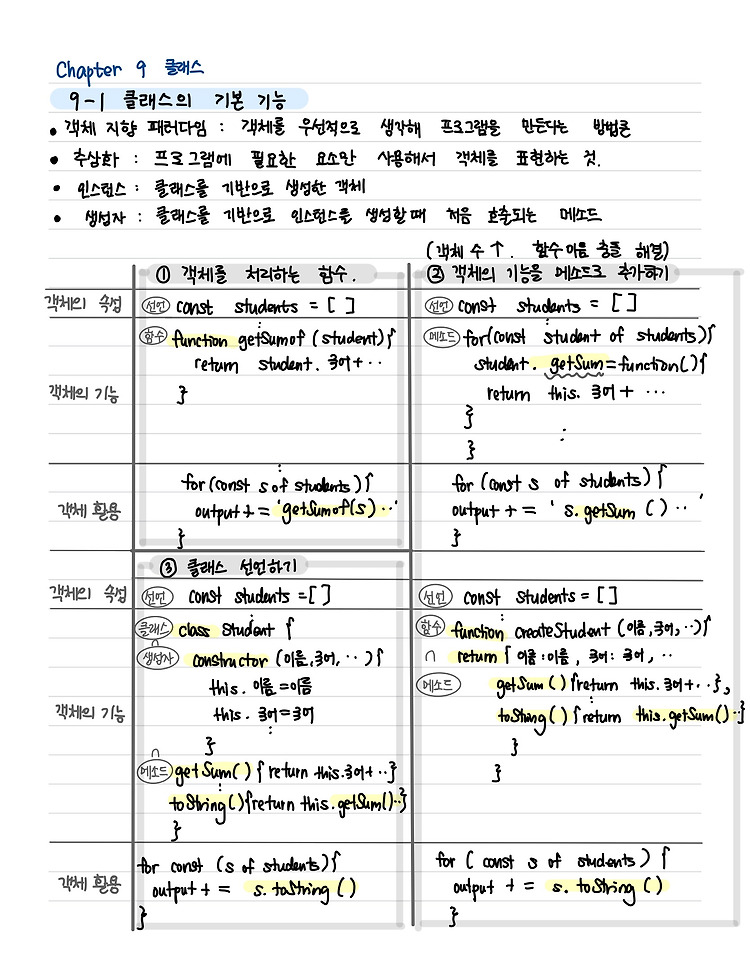 Chapter 9 클래스
9-1 클래스의 기본 기능
• 객체 지향 패러다임 : 객체를 우선적으로 생각해 프로그램을 만든다는 방법론
• 추상화 : 프로그램에 필요한 요소만 사용해서 객체를 표현하는 것.
• 인스턴스 : 클래스를 기반으로 생성한 객체
• 생성자 : 클래스를 기반으로 인스턴스를 생성할 때 처음 호출되는 메소드
(객체 수 ↑. 함수이음 충돌 해결)
① 객체를 처리하는 함수.
객체의 속성
선언 const students = [ ]
:
객체의 기능
함수 function getSumof (student){
return student. 국어+ ··
}
:
객체 활용
for (const s of students) {
output += 'getSumof(s)··'
}
② 객체의 기능을 메소드로 추가하기
선언 const students = [ ]
:
메소드 for(const student of students){
student. getSum = function() {
return this. 국어 + ···
}
:
}
for (const s of students) {
output += ' s. getSum () ·· '
}
③ 클래스 선언하기
객체의 속성
선언 const students = [ ]
:
객체의 기능
클래스 class Student {
∩
생성자 constructor (이름, 국어, ··) {
this. 이름 = 이름
this. 국어 = 국어
:
}
∩
메소드 getSum() { return this.국어+··}
:
toString() {return this.getSum()··}
}
객체 활용
for const (s of students) {
output += s. toString ()
}
선언 const students = [ ]
:
함수 function createStudent (이름,국어,··){
∩ return { 이름:이름, 국어: 국어, ··
메소드 getSum () {return this.국어+··},
:
toString () { return this.getSum()··}
}
}
for ( const s of students) {
output += s. toString ()
}